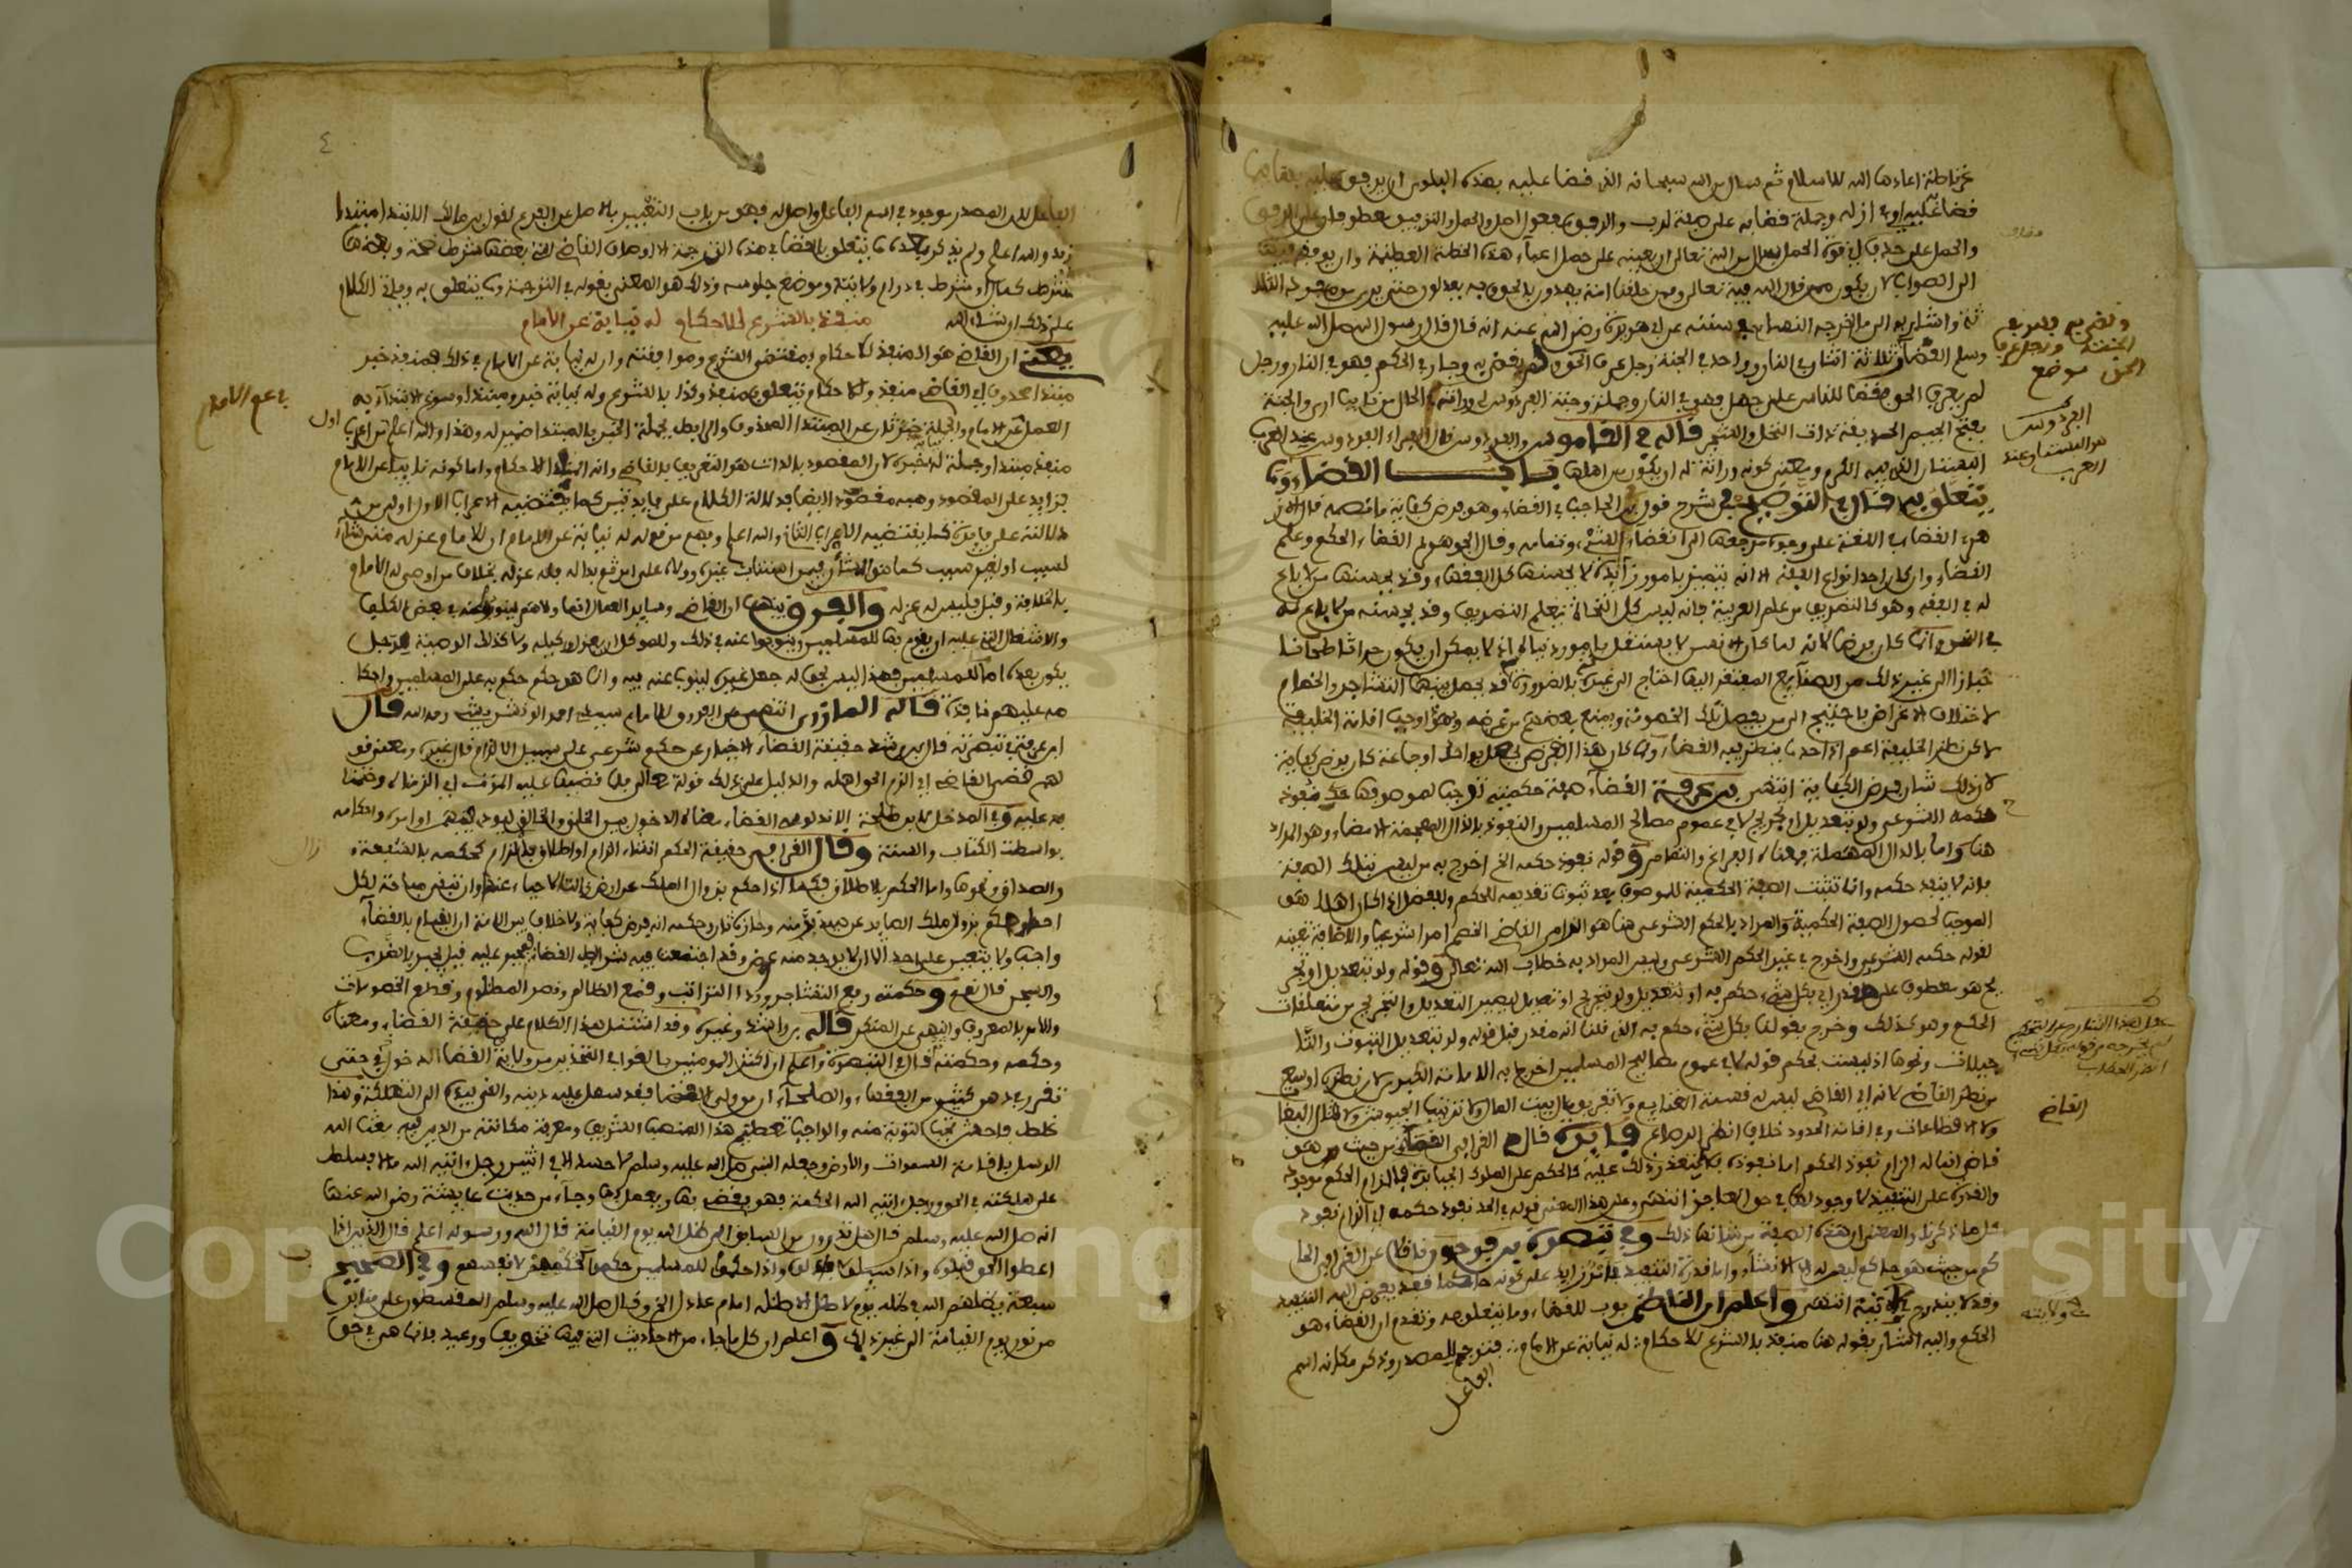 غرناطة اعادها الله للاسلام ثم سال من الله سبحانه الذي قضا عليه بهذه البلوى ان يرفق عليه بقاها
قضا عليه اي ازله وجملة قضا به على صفة لرب والرفق مفعول اصل والحمل والتوفيق معطوفان على الرفق
والحمل على حذف اي قوة الحمل سال من الله تعالى ان يعينه على حمل اعباء هذه الخطة العظيمة وان يوفقه فيها
الى الصواب لان يكون ممن قال الله فيه تعالى وممن خلقنا امة يهدون بالحق وبه يعدلون حتى يدرس من هو له الثلا
ثة واشار به الى ما اخرجه النسائي في سننه عن ابي هريرة رضي الله عنه انه قال قال رسول الله صلى الله عليه
وسلم القضاة ثلاثة اثنان في النار وواحد في الجنة رجل عرف الحق فلم يقض به وجار في الحكم فهو في النار ورجل
لم يعرف الحق فقضا للناس على جهل فهو في النار وجملة وجنة الفردوس له وراثة في الحال من نايب ارى والجنة
بفتح الجيم الحديقة ذات النخل والشجر قاله في القاموس والفردوس قال الفراء الفردوس عند العرب
البستان الذي فيه الكرم ومعنى كونه وراثة له ان يكون من اهلها باب القضاء وما
يتعلق به قال في التوضيح في شرح قول ابن الحاجب في القضاء وهو فرض كفاية ما نصه قال الاز
هري القضا في اللغة على وجوه مرجعها الى انقضاء الشيء وتمامه وقال الجوهري القضاء الحكم وعلم
القضاء وان كان احد انواع الفقه الا انه يتميز بامور زايدة لا يحسنها كل الفقهاء وقد يحسنها من لا باع
له في الفقه وهو كالتصريف من علم العربية فانه ليس كل النحاة يعلم التصريف وقد يحسنه من لا باع له
في النحو وانما كان فرضا لانه لما كان الانفس لا يستقل بامور دنياه اذ لا يمكن ان يكون حراثا طحانا
خبازا الى غير ذلك من الصنائع المفتقر اليها احتاج الى غيره بالضرورة قد يحصل بينهما التشاجر والخصام
لاختلاف الاغراض فاحتيج الى من يفصل تلك الخصومة ويمنع بعضهم من غرضه ولهذا وجب اقامة الخليفة
لاكن نظر الخليفة اعم اذ احد ما ينظر فيه القضاء ولما كان هذا الغرض يحصل بواحد او جماعة كان فرض كفاية
لان ذلك شان فرض الكفاية انتهى ابن عرفة القضاء صفة حكمية توجب لموصوفها نفوذ
حكمه الشرعي ولو بتعديل او تجريح لا في عموم مصالح المسلمين والنفوذ بالذال المعجمة الامضاء وهو المراد
هنا واما بالدال المهملة فمعناه الفراغ والتمام وقوله نفوذ حكمه الخ اخرج به من ليس بتلك الصفة
فانه لا ينفذ حكمه وانما تثبت الصفة الحكمية للموصوف بعد ثبوت تقديمه للحكم والفصل اذا كان اهلا هو
الموجب لحصول الصفة الحكمية والمراد بالحكم الشرعي هنا هو الزام القاضي الخصم امرا شرعيا والاضافة تعينه
لقوله حكمه الشرعي واخرج به غير الحكم الشرعي وليس المراد به خطاب الله تعالى وقوله ولو بتعديل او تجر
يح هو معطوف على مقدر اي بكل شيء حكم به او بتعديل ولو بتجريح او تعديل ليصير التعديل والتجريح من متعلقات
الحكم وهو كذلك وخرج بقولنا بكل شيء حكم به الذي قلنا انه مقدر قبل قوله ولو بتعديل الثبوت والتسا
جيلات ونحوها اذ ليست بحكم قوله لا في عموم مصالح المسلمين اخرج به الامامة الكبرى لان نظره اوسع
من نظر القاضي لانه اي القاضي ليس له قسمة الغنايم ولا تفريق بيت المال ولا ترتيب الجيوش ولا قتال البغا
ة ولا الاقطاعات وفي اقامة الحدود خلاف انظر الرصاع فايدة قال القرافي القضاء من حيث هو
قاض انما له الزام نفوذ الحكم اما نفوذه فلا ينفذ ذلك عليه كالحكم على الملوك الجبابرة فالزام الحكم موجود
والقدرة على التنفيذ لا وجود لها في حق العاجز انتهى وعلى هذا المعنى قوله في الحد نفوذ حكمه اي الزام نفوذ
على ما ذكرنا والمعنى ان هذه الصفة من شانها ذلك وفي تبصرة ابن فرحون ناقلا عن القرافي الحا
كم من حيث هو حاكم ليس له الا الانشاء واما قدرة التنفيذ فامر زايد على كونه حاكما فقد يفوض اليه التنفيذ
وقد لا يندرج في ولايته انتهى واعلم ان الناظم بوب للقضاء وما يتعلق به وتقدم ان القضاء هو
الحكم واليه اشار بقوله هنا منفذ بالشرع للاحكام له نيابة عن الامام فترجم للمصدر وذكر مكانه اسم
الفاعل
الفردوس
هو البستان عند
العرب
القاضي
في ولايته
٤
الفاعل لان المصدر موجود في اسم الفاعل واصل له فهو من باب التعبير بالاصل عن الفرع لقول ابن مالك المبتدا مبتدا
زيد والله اعلم ولم يذكر بعد ما يتعلق بالقضاء في هذه الترجمة الا اوصاف القاضي التي بعضها شرط صحة وبعضها
شرط كمال او شرط في دوام ولايته وموضع جلوسه وذلك هو المعني بقوله في الترجمة وما يتعلق به وياتي الكلام
على ذلك ان شاء الله منفذ بالشرع للاحكام له نيابة عن الامام
يعني ان القاضي هو المنفذ للاحكام بمقتضى الشرع وموافقته وان له نيابة عن الامام في ذلك فمنفذ خبر
مبتدا محذوف اي القاضي منفذ وللاحكام يتعلق بمنفذ وكذا بالشرع وله نيابة خبر ومبتدا وسوغ الابتداء به
العمل في عن الامام والجملة خبر ثان عن المبتدا المحذوف والرابط بجملة الخبر بالمبتدا ضمير له وهذا والله اعلم من اعراب
في عن الامام
اول
منفذ مبتدا وجملة له خبره لان المقصود بالذات هو التعريف بالقاضي وانه المنفذ للاحكام واما كونه نايبا عن الامام
فزايد على المقصود وهبه مقصودا ايضا فدلالة الكلام على فايدتين كما يقتضيه الاعراب الاول اولى من
دلالته على فايدة كما يقتضيه الاعراب الثاني والله اعلم وفهم من قوله له نيابة عن الامام ان للامام عزله متى شاء
لسبب او لغير سبب كما هو الشان فيمن استناب غيره وولاه على امر ثم بدا له فله عزله بخلاف من اوصى له الامام
بالخلافة وقبل فليس له عزله والفرق بينهما ان القاضي وساير العمال انما ولاهم لينوبوا عنه في بعض الكلف
والاشغال التي عليه ان يقوم بها للمسلمين وينوبوا عنه في ذلك وللموكل ان يعزل وكيله ولا كذلك الوصية لرجل
يكون بعده اماما للمسلمين فهذا ليس بحق له جعل غيره لينوب عنه فيه وانما هو حكم حكم به على المسلمين واحكا
مه عليهم نافذة قاله المازري انتهى من الفروق للامام سيدي احمد الونشريشي رحمه الله قال
ابن فرحون في تبصرته قال ابن رشد حقيقة القضاء الاخبار عن حكم شرعي على سبيل الالزام قال غيره ومعنى قو
لهم قضى القاضي اي الزم الحق اهله والدليل على ذلك قوله تعالى فلما قضينا عليه الموت اي الزمناه وحتمنا
به عليه وفي المدخل لابن طلحة الاندلسي القضاء معناه الدخول بين الخلق والخالق ليودي فيهم اوامره واحكامه
بواسطة الكتاب والسنة وقال القرافي حقيقة الحكم انشاء الزام او اطلاق فالالزام كحكمه بالشفعة
والصداق ونحوها واما الحكم بالاطلاق فكما اذا حكم بزوال الملك عن ارض زال الاحياء عنها وان تبقى مباحة لكل
احد او حكم بزوال ملك الصايد عن صيد ند منه وحازه ثان وحكمه انه فرض كفاية ولا خلاف بين الامة ان القيام بالقضاء
واجب ولا يتعين على احد الا ان لا يوجد منه عوض وقد اجتمعت فيه شرائط القضاء فيجبر عليه قيل يجبر بالضرب
والسجن قال نعم وحكمته رفع التشاجر ورد النوائب وقمع الظالم ونصر المظلوم وقطع الخصومات
والامر بالمعروف والنهي عن المنكر قاله ابن راشد وغيره وقد اشتمل هذا الكلام على حقيقة القضاء ومعناه
وحكمه وحكمته قال في التبصرة واعلم ان اكثر المولفين بالغوا في التحذير من ولاية القضاء الدخول فيه حتى
تقرر في ذهن كثير من الفقهاء والصلحاء ان من ولي القضا فقد سهل عليه دينه والقى بيده الى التهلكة وهذا
غلط فاحش تجب التوبة منه والواجب تعظيم هذا المنصب الشريف ومعرفة مكانته من الدين فيه بعث الله
الرسل باقامته السموات والارض وجعله النبي صلى الله عليه وسلم لا حسد الا في اثنتين رجل اتيه الله مالا فسلطه
على هلكته في الحق ورجل اتيه الله الحكمة فهو يقضي بها ويعمل بها وجاء من حديث عايشة رضي الله عنها
انه صلى الله عليه وسلم قال هل تدرون من السابقون الى ظل الله يوم القيامة قال الله ورسوله اعلم قال الذين اذا
اعطوا الحق قبلوه واذا سيلوا بذلوه واذا حكموا للمسلمين حكموا كحكمهم لانفسهم وفي الصحيح
سبعة يظلهم الله في ظله يوم لا ظل الا ظله امام عادل الخ وقال صلى الله عليه وسلم المقسطون على منابر
من نور يوم القيامة الى غير ذلك واعلم ان كل ما جاء من الاحاديث التي فيها تخويف ووعيد فانما هي في حق
Copy King University